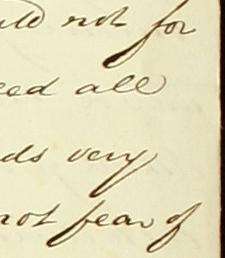 uld not for
eed all
ds very
not fear of